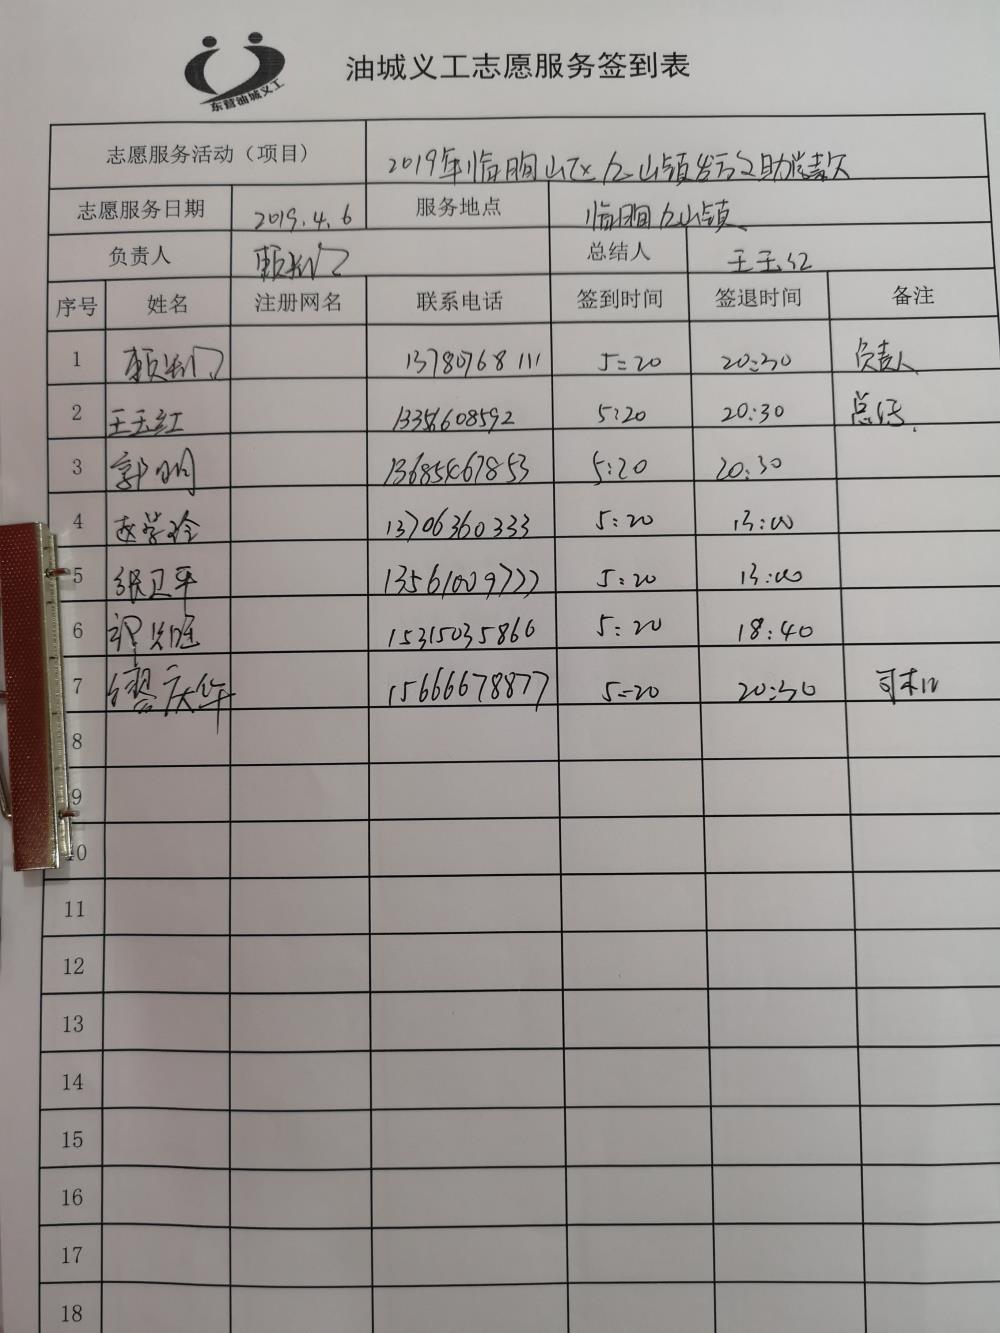 东营油城义工
油城义工志愿服务签到表
志愿服务活动（项目） 2019年临朐山区九山镇发放助学善款
志愿服务日期 2019.4.6 服务地点 临朐九山镇
负责人 总结人 王玉红
序号 姓名 注册网名 联系电话 签到时间 签退时间 备注
1 13780768111 5:20 20:30 负责人
2 王玉红 13356608592 5:20 20:30 总结.
3 郭明 13685467853 5:20 20:30
4 赵学玲 13706360333 5:20 13:00
5 张卫平 13561009777 5:20 13:00
6 15315035866 5:20 18:40
7 庆华 15666678877 5:20 20:30 司机
8
9
10
11
12
13
14
15
16
17
18